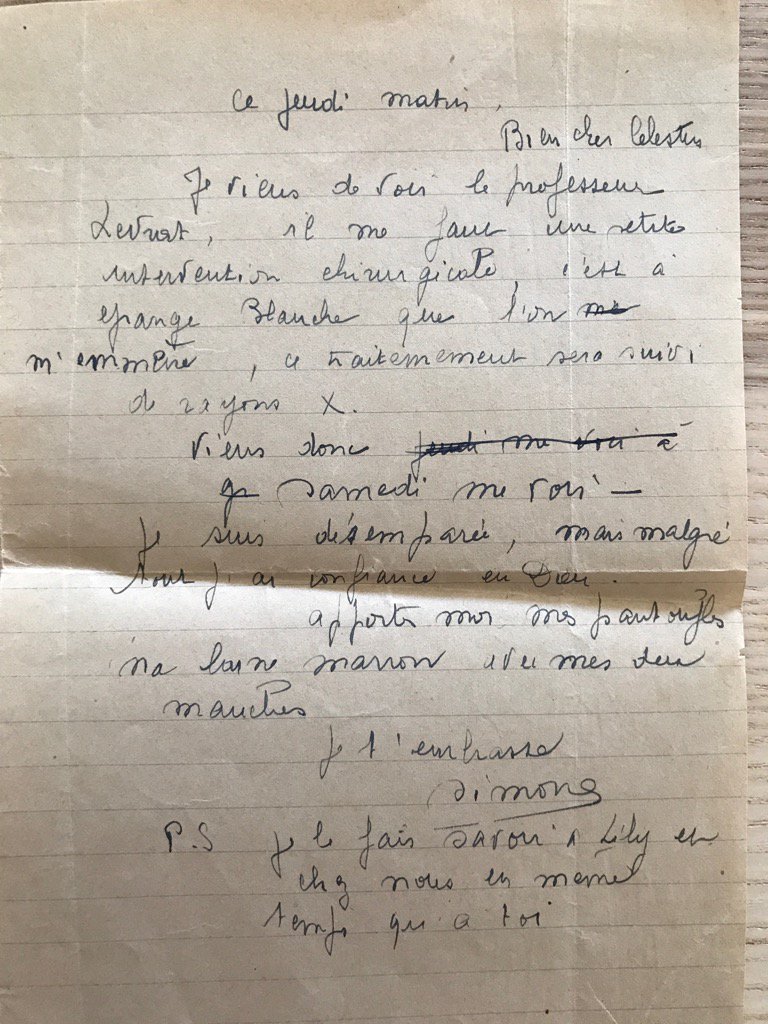 Ce jeudi matin,
Bien cher Celestin
Je viens de voir le professeur
Levrat, il me faut une petite
intervention chirurgicale, c'est à
Grange Blanche que l'on me
m'emmène, ce traitemement sera suivi
de rayons X.
Viens donc jeudi me voir à
samedi me voir —
Je suis désemparée, mais malgré
tout j'ai confiance en Dieu.
apporte moi mes pantoufles
ma laine marron avec mes deux
manches
Je t'embrasse
Simone
P.S Je le fais savoir à Lily et
chez nous en même
temps qu'a toi